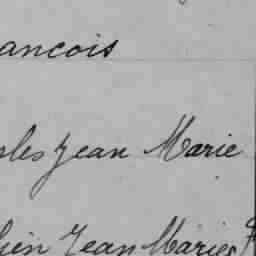 ancois
les Jean Marie
ien Jean Marie